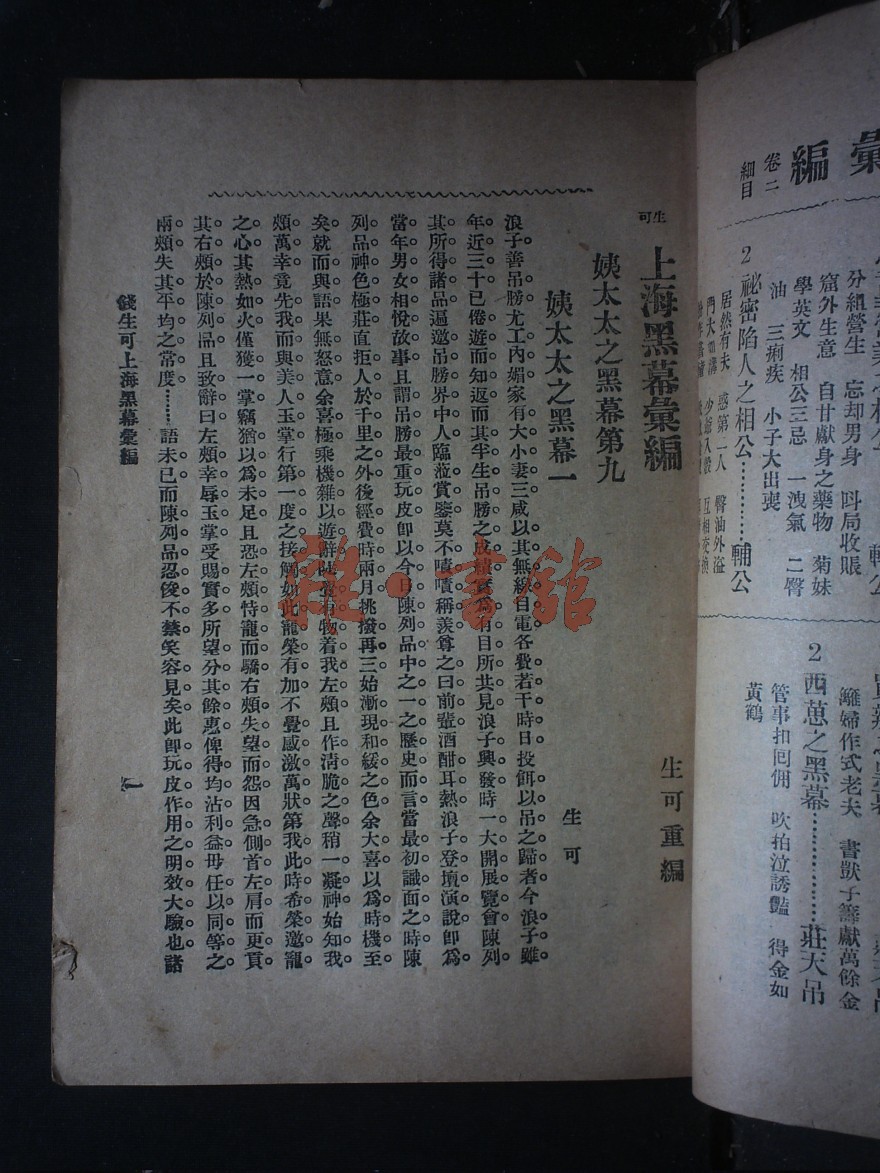 彙
編
卷二
細目
分組營生 忘却男身 呌局收賬
窟外生意 自甘獻身之藥物 菊妹
學英文 相公三忌 一洩氣 二臀
油 三痢疾 小子大出喪
輔公
2 祕密陷人之相公…………輔公
居然有夫 惑第二人 臀油外溢
門大如溝 少爺入彀 互相交換
籬婦作式老夫 書獃子籌獻萬餘金
2 西蒽之黑幕…………………莊天吊
管事扣囘佣 吹拍泣誘豔 得金如
黃鶴
生可
上海黑幕彙編
生可重編
姨太太之黑幕第九
姨太太之黑幕一
生可
浪子善吊勝尤工內媚家有大小妻三咸以其無線自電各費若干時日投餌以吊之歸者今浪子雖
年近三十已倦遊而知返而其半生吊勝之成績實爲有目所共見浪子興發時一大開展覽會陳列
其所得諸品逼邀吊勝界中人臨蒞賞鑒莫不嘖嘖稱羨尊之曰前輩酒酣耳熱浪子登壇演說卽爲
當年男女相悅故事且謂吊勝最重玩皮卽以今日陳列品中之一之歷史而言當最初識面之時陳
列品神色極莊直拒人於千里之外後經費時兩月挑撥再三始漸現和緩之色余大喜以爲時機至
矣就而與語果無怒意余喜極乘機雜以遊辭陡覺有物着我左頰且作淸脆之聲稍一凝神始知我
頰萬幸竟先我而與美人玉掌行第一度之接觸如此寵榮有加不覺感激萬狀第我此時希榮邀寵
之心其熱如火僅獲一掌竊猶以爲未足且恐左頰恃寵而驕右頰失望而怨因急側首左肩而更貢
其右頰於陳列品且致辭曰左頰幸辱玉掌受賜實多所望分其餘惠俾得均沾利益毋任以同等之
兩頰失其平均之常度……語未已而陳列品忍俊不禁笑容見矣此卽玩皮作用之明效大驗也諸
錢生可上海黑幕彙編
一
雜·書館